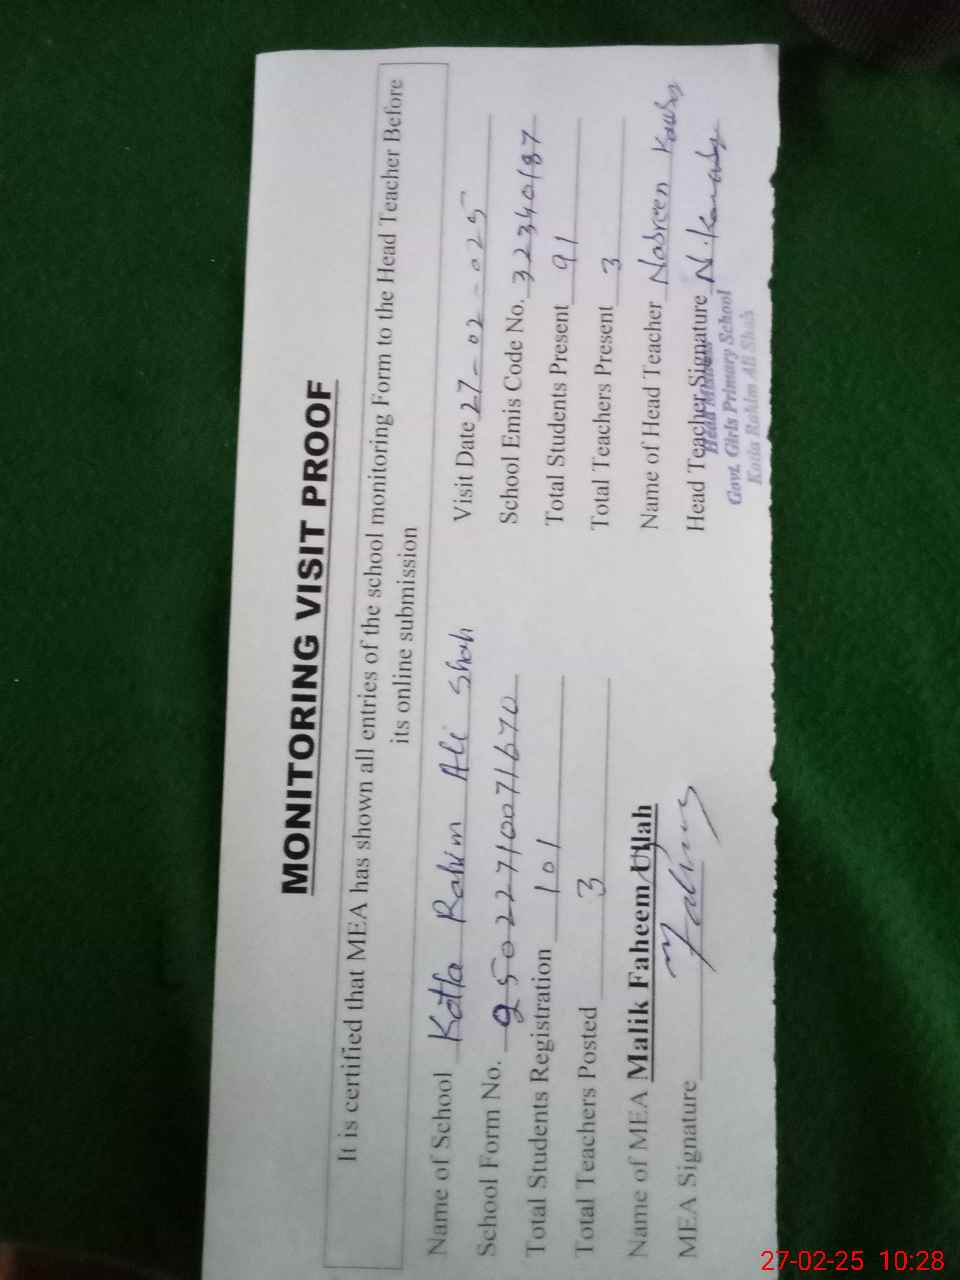 MONITORING VISIT PROOF
It is certified that MEA has shown all entries of the school monitoring Form to the Head Teacher Before
its online submission
Name of School Kotla Rahim Ali Shah
Visit Date 27-02-025
School Form No. 950222710071670
School Emis Code No. 32340187
Total Students Registration 101
Total Students Present 91
Total Teachers Posted 3
Total Teachers Present 3
Name of MEA Malik Faheem Ullah
Name of Head Teacher Nasreen Kausar
MEA Signature
Head Teacher Signature
Head Mistress
Govt. Girls Primary School
Kotla Rahim Ali Shah
27-02-25 10:28